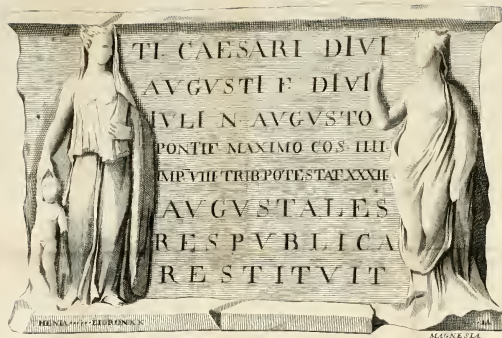 TI· CAESARI DIVI
AVGVSTI F· DIVI
IVLI N· AVGVSTO
PONTIF MAXIMO COS· IIII
IMP VIII TRIB POTESTAT XXXII
AVGVSTALES
RESPVBLICA
RESTITVIT
HENIA
MAGNESIA